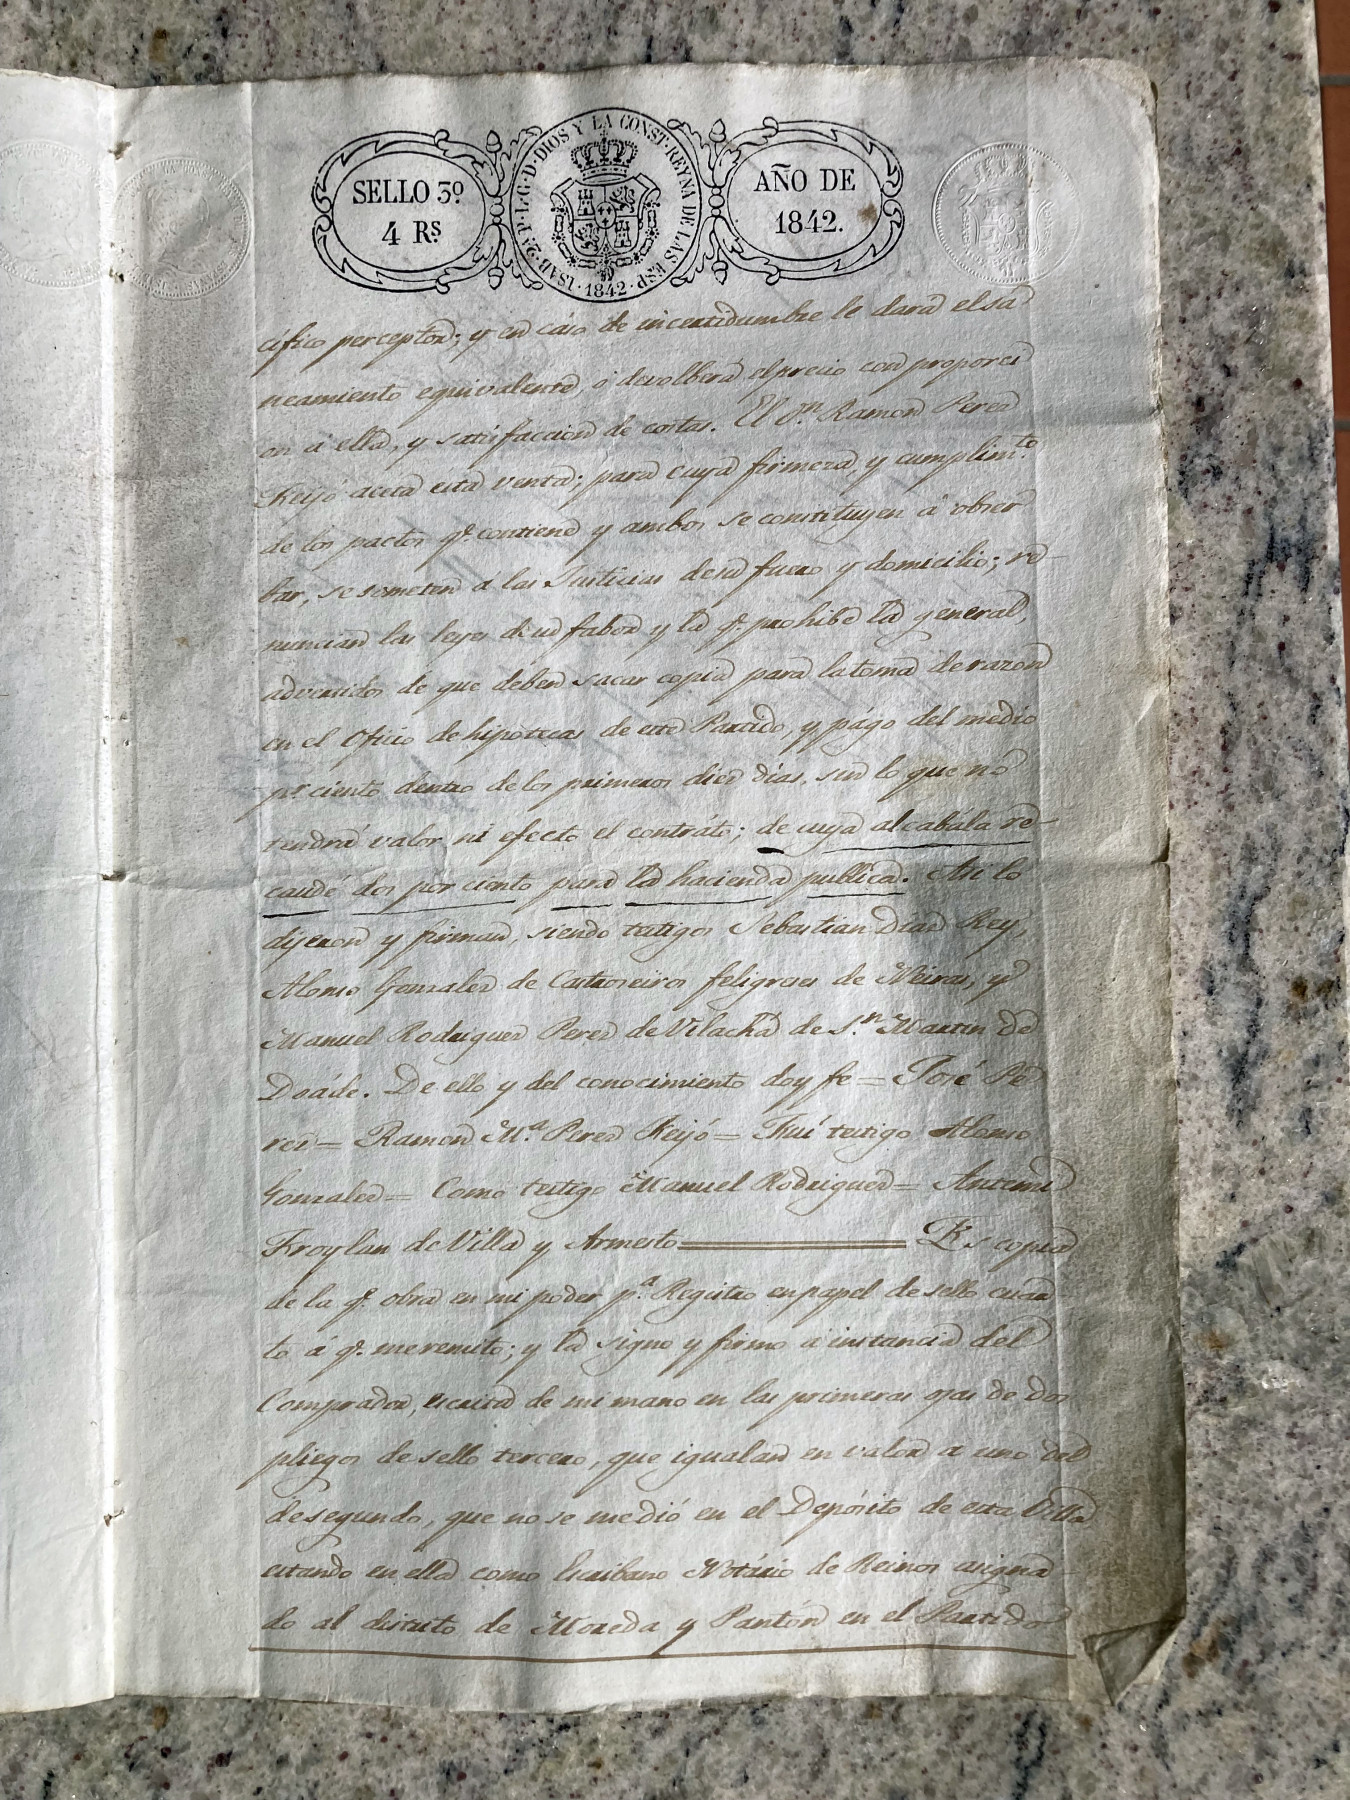 SELLO 3º
4 Rs
ISAB. 2ª P. L. G. D. DIOS Y LA CONST. REYNA DE LAS ESP. 1842.
AÑO DE
1842.
cifico perceptor; y en caso de incertidumbre le dará el sa
neamiento equivalente, ó devolberá el precio con proporci
on á ella, y satisfaccion de costas. El Dn Ramon Perez
Keijó aceta esta venta; para cuya firmeza, y cumplimto
de los pactos q.e contiene y ambos se constituyen á obser
bar, se someten á las Justicias de su fuero y domicilio; re-
nuncian las leyes de su fabor y la q.e prohibe la general,
advertidos de que deben sacar copia para la toma de razon
en el Oficio de hipotecas de este Partido, y págo del medio
p.r ciento dentro de los primeros diez dias, sin lo que no
tendrá valor ni efecto el contráto; de cuya alcabála re-
caudé dos por ciento para la hacienda publica. Asi lo
dijeron y firman, siendo testigos Sebastian Diaz Rey,
Alonso Gonzalez de Castroseiros feligreses de Neiras, y
Manuel Rodriguez Perez de Vilachá de S.n Martin de
Doáde. De ello y del conocimiento doy fe = José Pe
rez = Ramon M.a Perez Keijó = Fuí testigo Alonso
Gonzalez = Como testigo Manuel Rodriguez = Antemi
Froylan de Villa y Armesto = Es copia
de la q.e obra en mi poder p.r Registro en papel de sello cuar
to á q.e me remito; y la signo y firmo á instancia del
Comprador, escrita de mi mano en las primeras ojas de dos
pliegos de sello tercero, que igualan en valor a uno del
de segundo, que no se me dió en el Depósito de esta Villa
estando en ella como Escribano Notário de Reinos asigna
do al distrito de Moreda y Pantón en el Partido